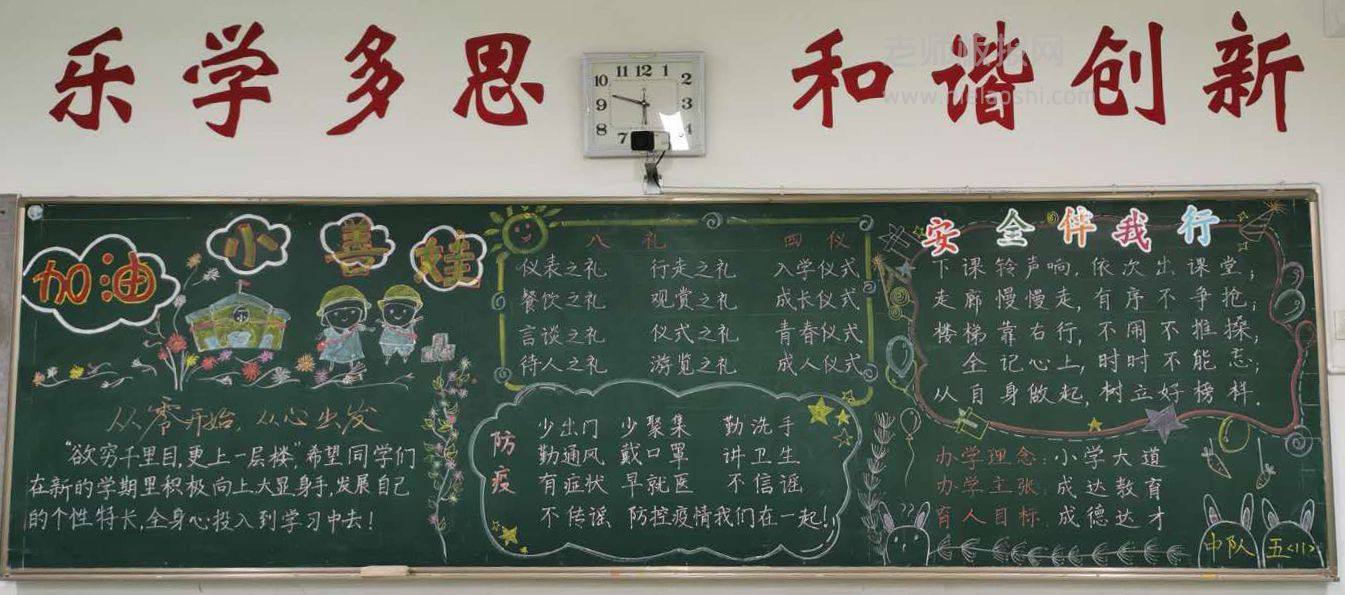 乐学多思 和谐创新
老师板报网
11 12 1
10 2
9 3
8 4
7
加油
小善娃
从零开始，从心出发
“欲穷千里目，更上一层楼”，希望同学们
在新的学期里积极向上，大显身手，发展自己
的个性特长，全身心投入到学习中去！
八礼 四仪
仪表之礼 行走之礼 入学仪式
餐饮之礼 观赏之礼 成长仪式
言谈之礼 仪式之礼 青春仪式
待人之礼 游览之礼 成人仪式
防疫
少出门 少聚集 勤洗手
勤通风 戴口罩 讲卫生
有症状 早就医 不信谣
不传谣 防控疫情我们在一起！
安全伴我行
下课铃声响，依次出课堂；
走廊慢慢走，有序不争抢；
楼梯靠右行，不闹不推搡；
全记心上，时时不能忘；
从自身做起，树立好榜样．
办学理念：小学大道
办学主张：成达教育
育人目标：成德达才
??
中队 五<11>